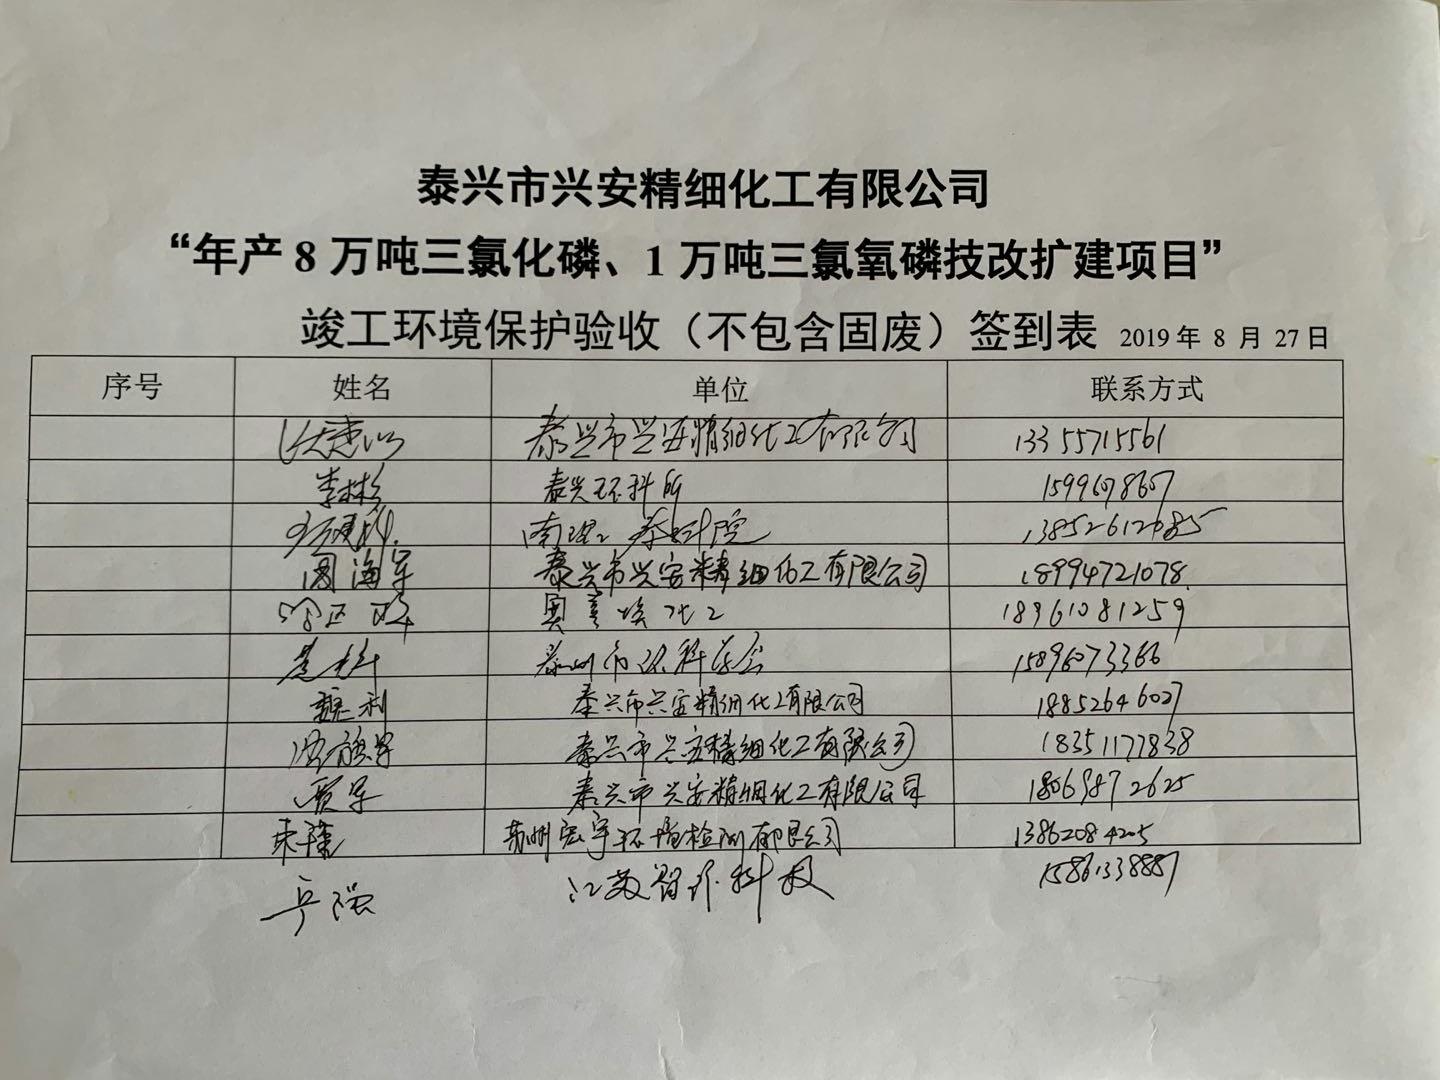 泰兴市兴安精细化工有限公司
“年产8万吨三氯化磷、1万吨三氯氧磷技改扩建项目”
竣工环境保护验收（不包含固废）签到表 2019年 8 月 27日
序号 姓名 单位 联系方式
泰兴市兴安精细化工有限公司 13355715561
李彬彬 泰兴环科所 15996078607
南理工泰科院 13852612685
周海军 泰兴市兴安精细化工有限公司 18994721078
化工 18961081259
泰州市环科学会 15896073366
魏利 泰兴市兴安精细化工有限公司 18852646027
泰兴市兴安精细化工有限公司 18351177838
贾军 泰兴市兴安精细化工有限公司 18069872625
朱瑾 苏州宏宇环境检测有限公司 13862084205
江苏智环科技 15861338887